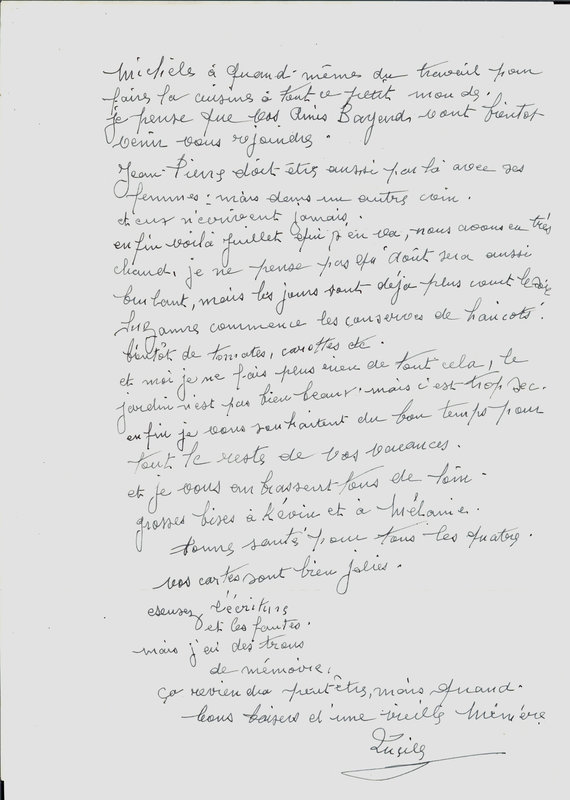 Michèle à quand-mêmes du travail pour
faire la cuisine à tout ce petit monde.
je pense que vos Amis vont bientot
venir vous rejoindre.
Jean-Pierre doit être aussi par là avec ses
femmes : mais dans un autre coin.
et eux n'écrivent jamais.
enfin voilà juillet qui s'en va, nous avons eu très
chaud, je ne pense pas qu'août sera aussi
brulant, mais les jours sont déjà plus court le soir
Suzanne commence les conserves de haricots.
bientôt de tomates, carottes etc.
et moi je ne fais plus rien de tout cela, le
jardin n'est pas bien beaux. mais c'est trop sec.
enfin je vous souhaitent du bon temps pour
tout le reste de vos vacances.
et je vous embrassent tous de loin.
grosses bises à Kévin et à Mélanie.
bonne santé pour tous les quatre.
vos cartes sont bien jolies.
escusez l'écriture
et les fautes.
mais j'ai des trous
de mémoire.
ça reviendra peutêtre, mais quand.
bons baisers d'une vieille Mémère
Lucile